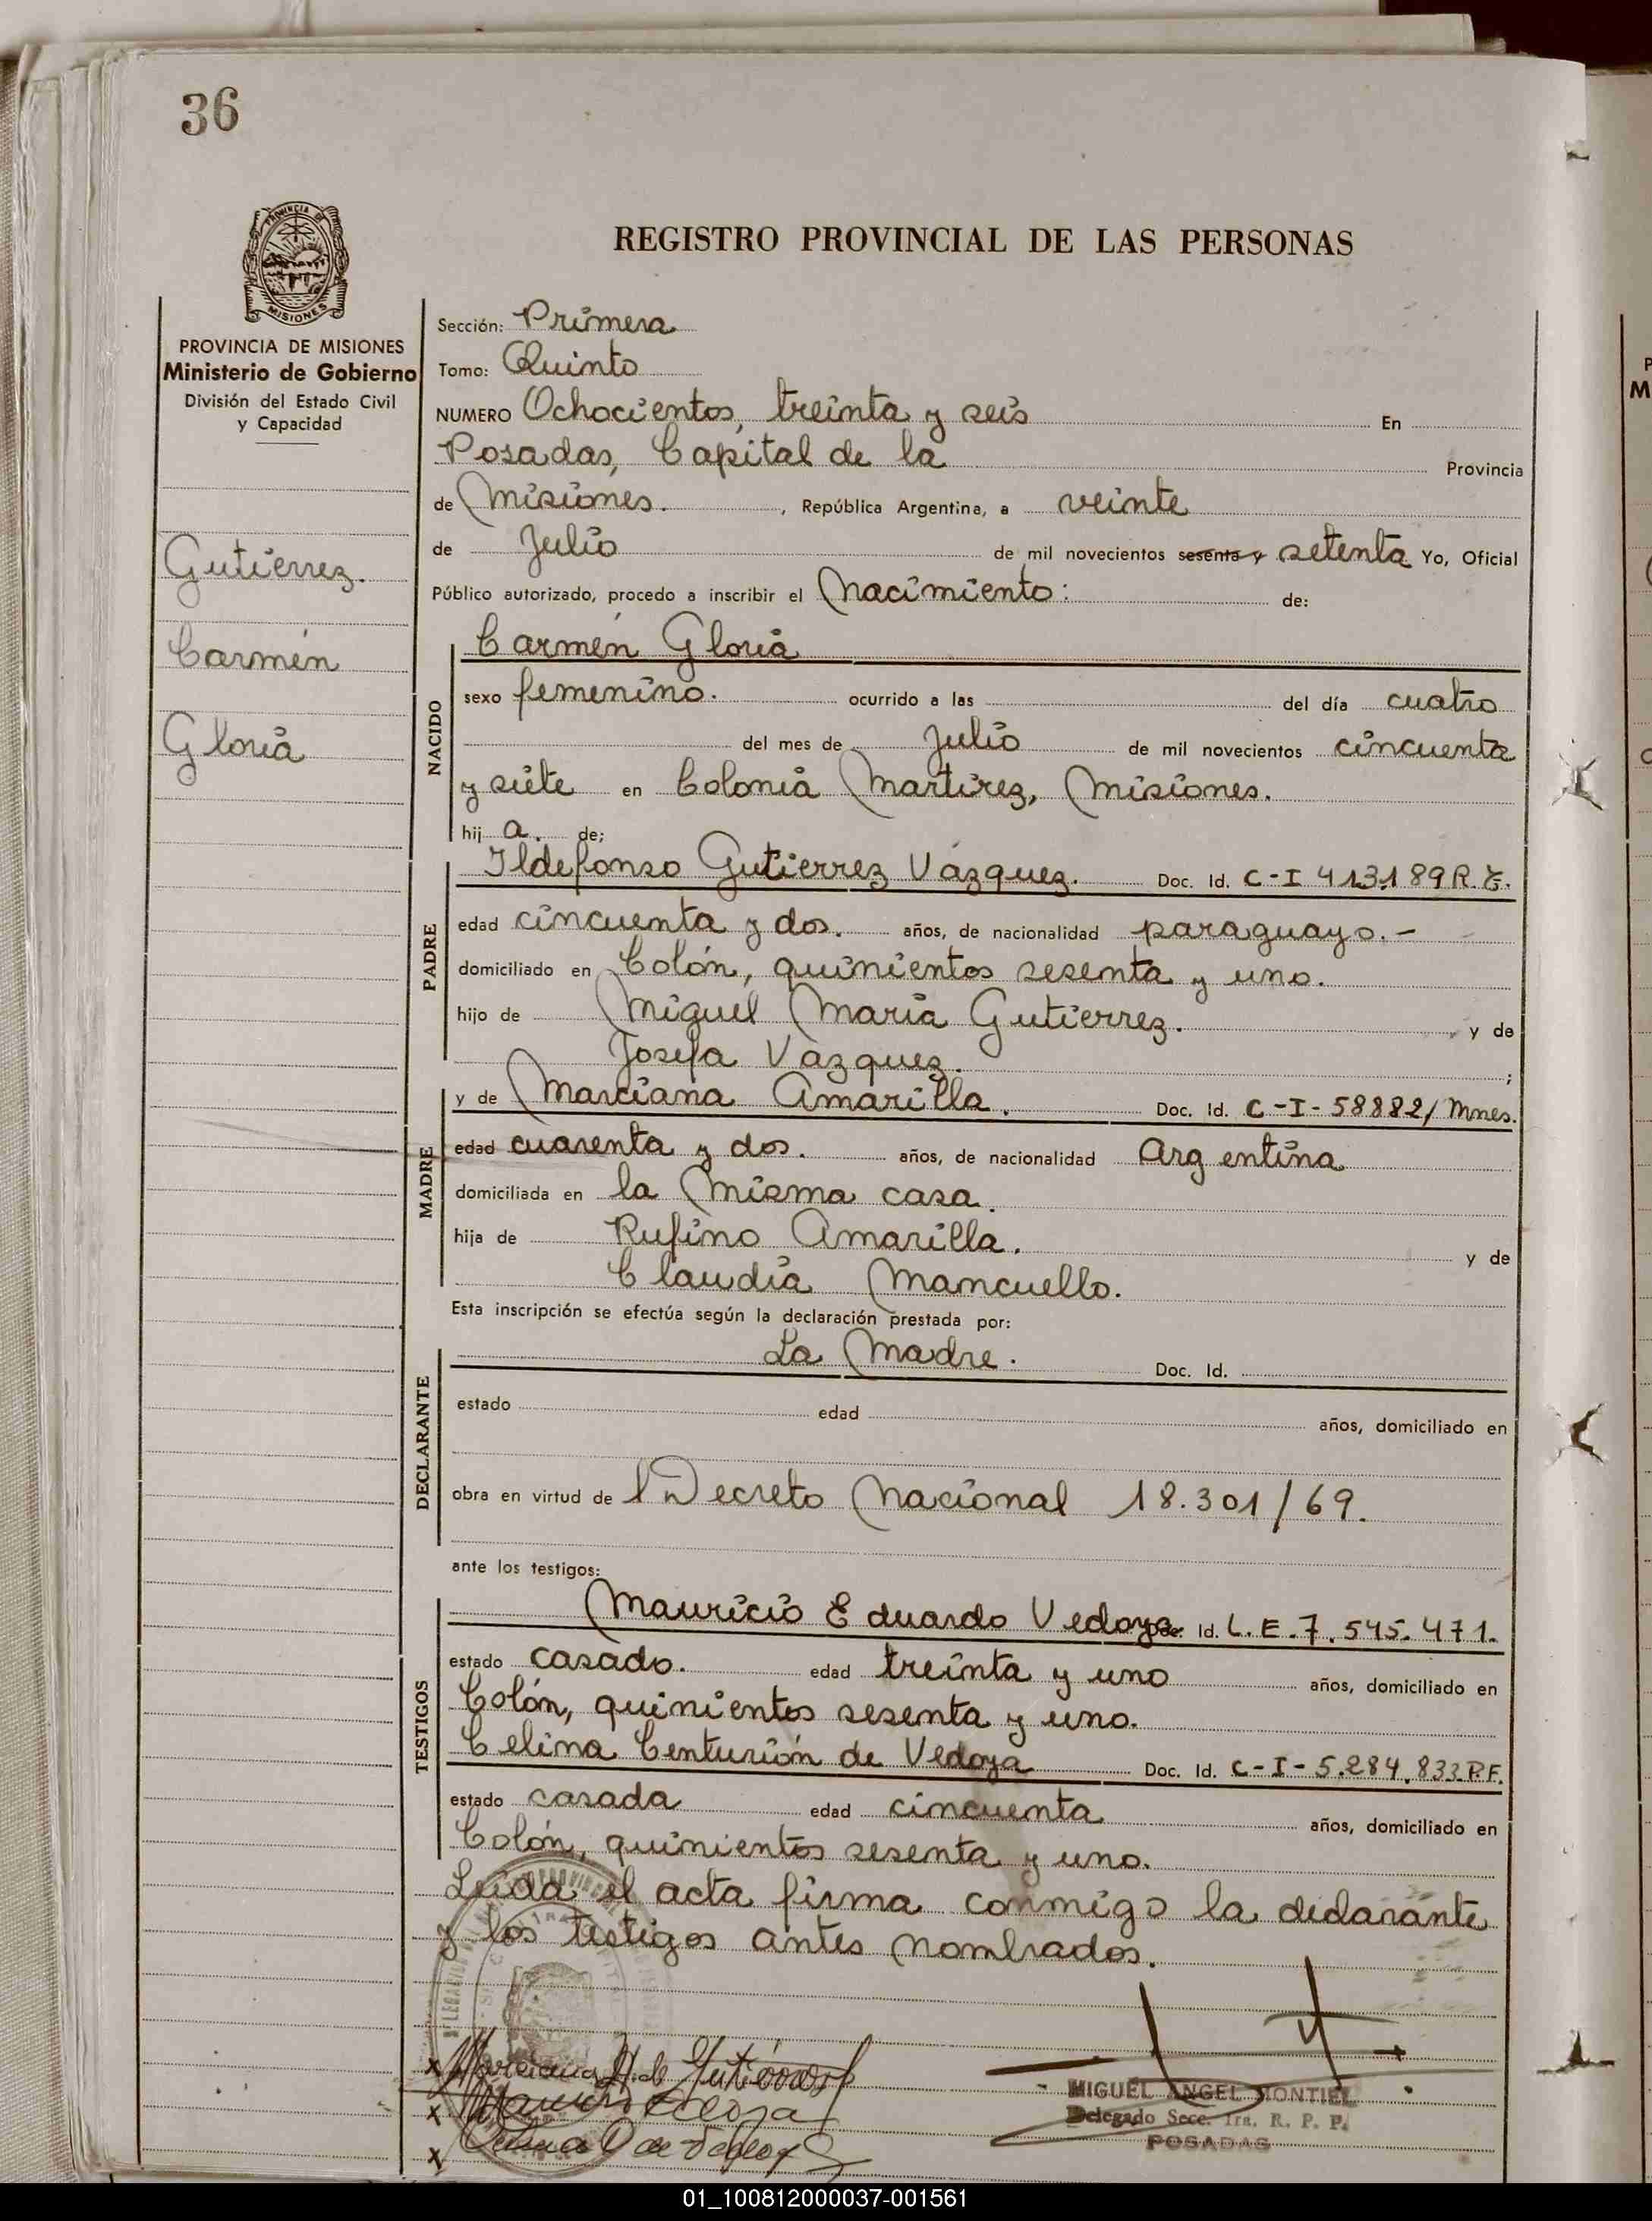 36
PROVINCIA DE
MISIONES
REGISTRO PROVINCIAL DE LAS PERSONAS
PROVINCIA DE MISIONES
Ministerio de Gobierno
División del Estado Civil
y Capacidad
Gutiérrez.
Carmen
Gloria
Sección: Primera
Tomo: Quinto
NUMERO Ochocientos, treinta y seis En
Posadas, Capital de la Provincia
de Misiones. , República Argentina, a veinte
de Julio de mil novecientos sesenta y setenta Yo, Oficial
Público autorizado, procedo a inscribir el Nacimiento: de:
NACIDO
Carmen Gloria
sexo femenino. ocurrido a las del día cuatro
del mes de Julio de mil novecientos cincuenta
y siete en Colonia Martirez, Misiones.
hij a. de;
PADRE
Ildefonso Gutierrez Vázquez. Doc. Id. C-I 413189 R.
edad cincuenta y dos. años, de nacionalidad paraguayo.-
domiciliado en Colón, quinientos sesenta y uno.
hijo de Miguel María Gutierrez. y de
Josefa Vazquez. ;
MADRE
y de Marciana Amarilla. Doc. Id. C-I-58882/Mnes.
edad cuarenta y dos. años, de nacionalidad Argentina
domiciliada en la Misma casa.
hija de Rufino Amarilla. y de
Claudia Mancuello.
Esta inscripción se efectúa según la declaración prestada por:
DECLARANTE
La Madre. Doc. Id.
estado edad años, domiciliado en
obra en virtud de l Decreto Nacional 18.301/69.
ante los testigos:
TESTIGOS
Mauricio Eduardo Vedoya Id. L.E.7.545.471.
estado casado. edad treinta y uno años, domiciliado en
Colón, quinientos sesenta y uno.
Celina Centurión de Vedoya Doc. Id. C-I-5.284.833 P.F.
estado casada edad cincuenta años, domiciliado en
Colón, quinientos sesenta y uno.
Leida el acta firma conmigo la declarante
y los testigos antes nombrados.
x Marciana A. de Gutiérrez
x
x
MIGUEL ANGEL MONTIEL
Delegado Secc. 1ra. R. P. P.
POSADAS
01_100812000037-001561